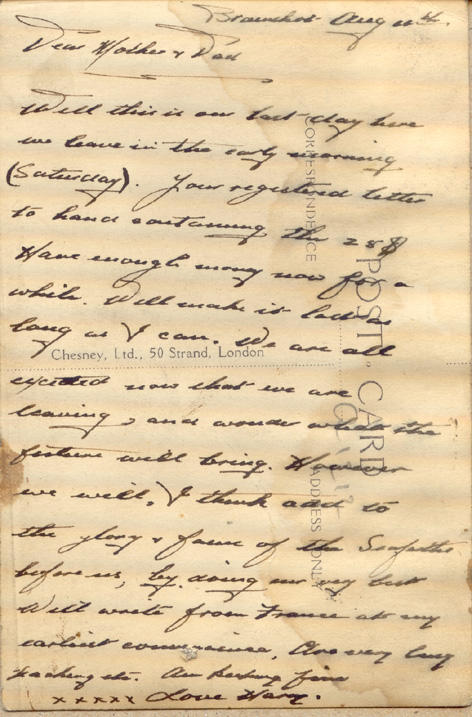 Bramshot Aug 11th.
Dear Mother & Dad
Well this is our last day here
we leave in the early morning
(Saturday). Your registered letter
to hand containing the 28$
Have enough money now for a
while. Will make it last as
long as I can. We are all
excited now that we are
leaving, and wonder what the
future will bring. However
we will, I think add to
the glory & fame of the
before us, by doing our very best
Will write from France at my
earliest convenience, Are very busy
packing etc. Am feeling fine
xxxxx Love Harry.
CORRESPONDENCE
POST CARD
ADDRESS ONLY
Chesney, Ltd., 50 Strand, London